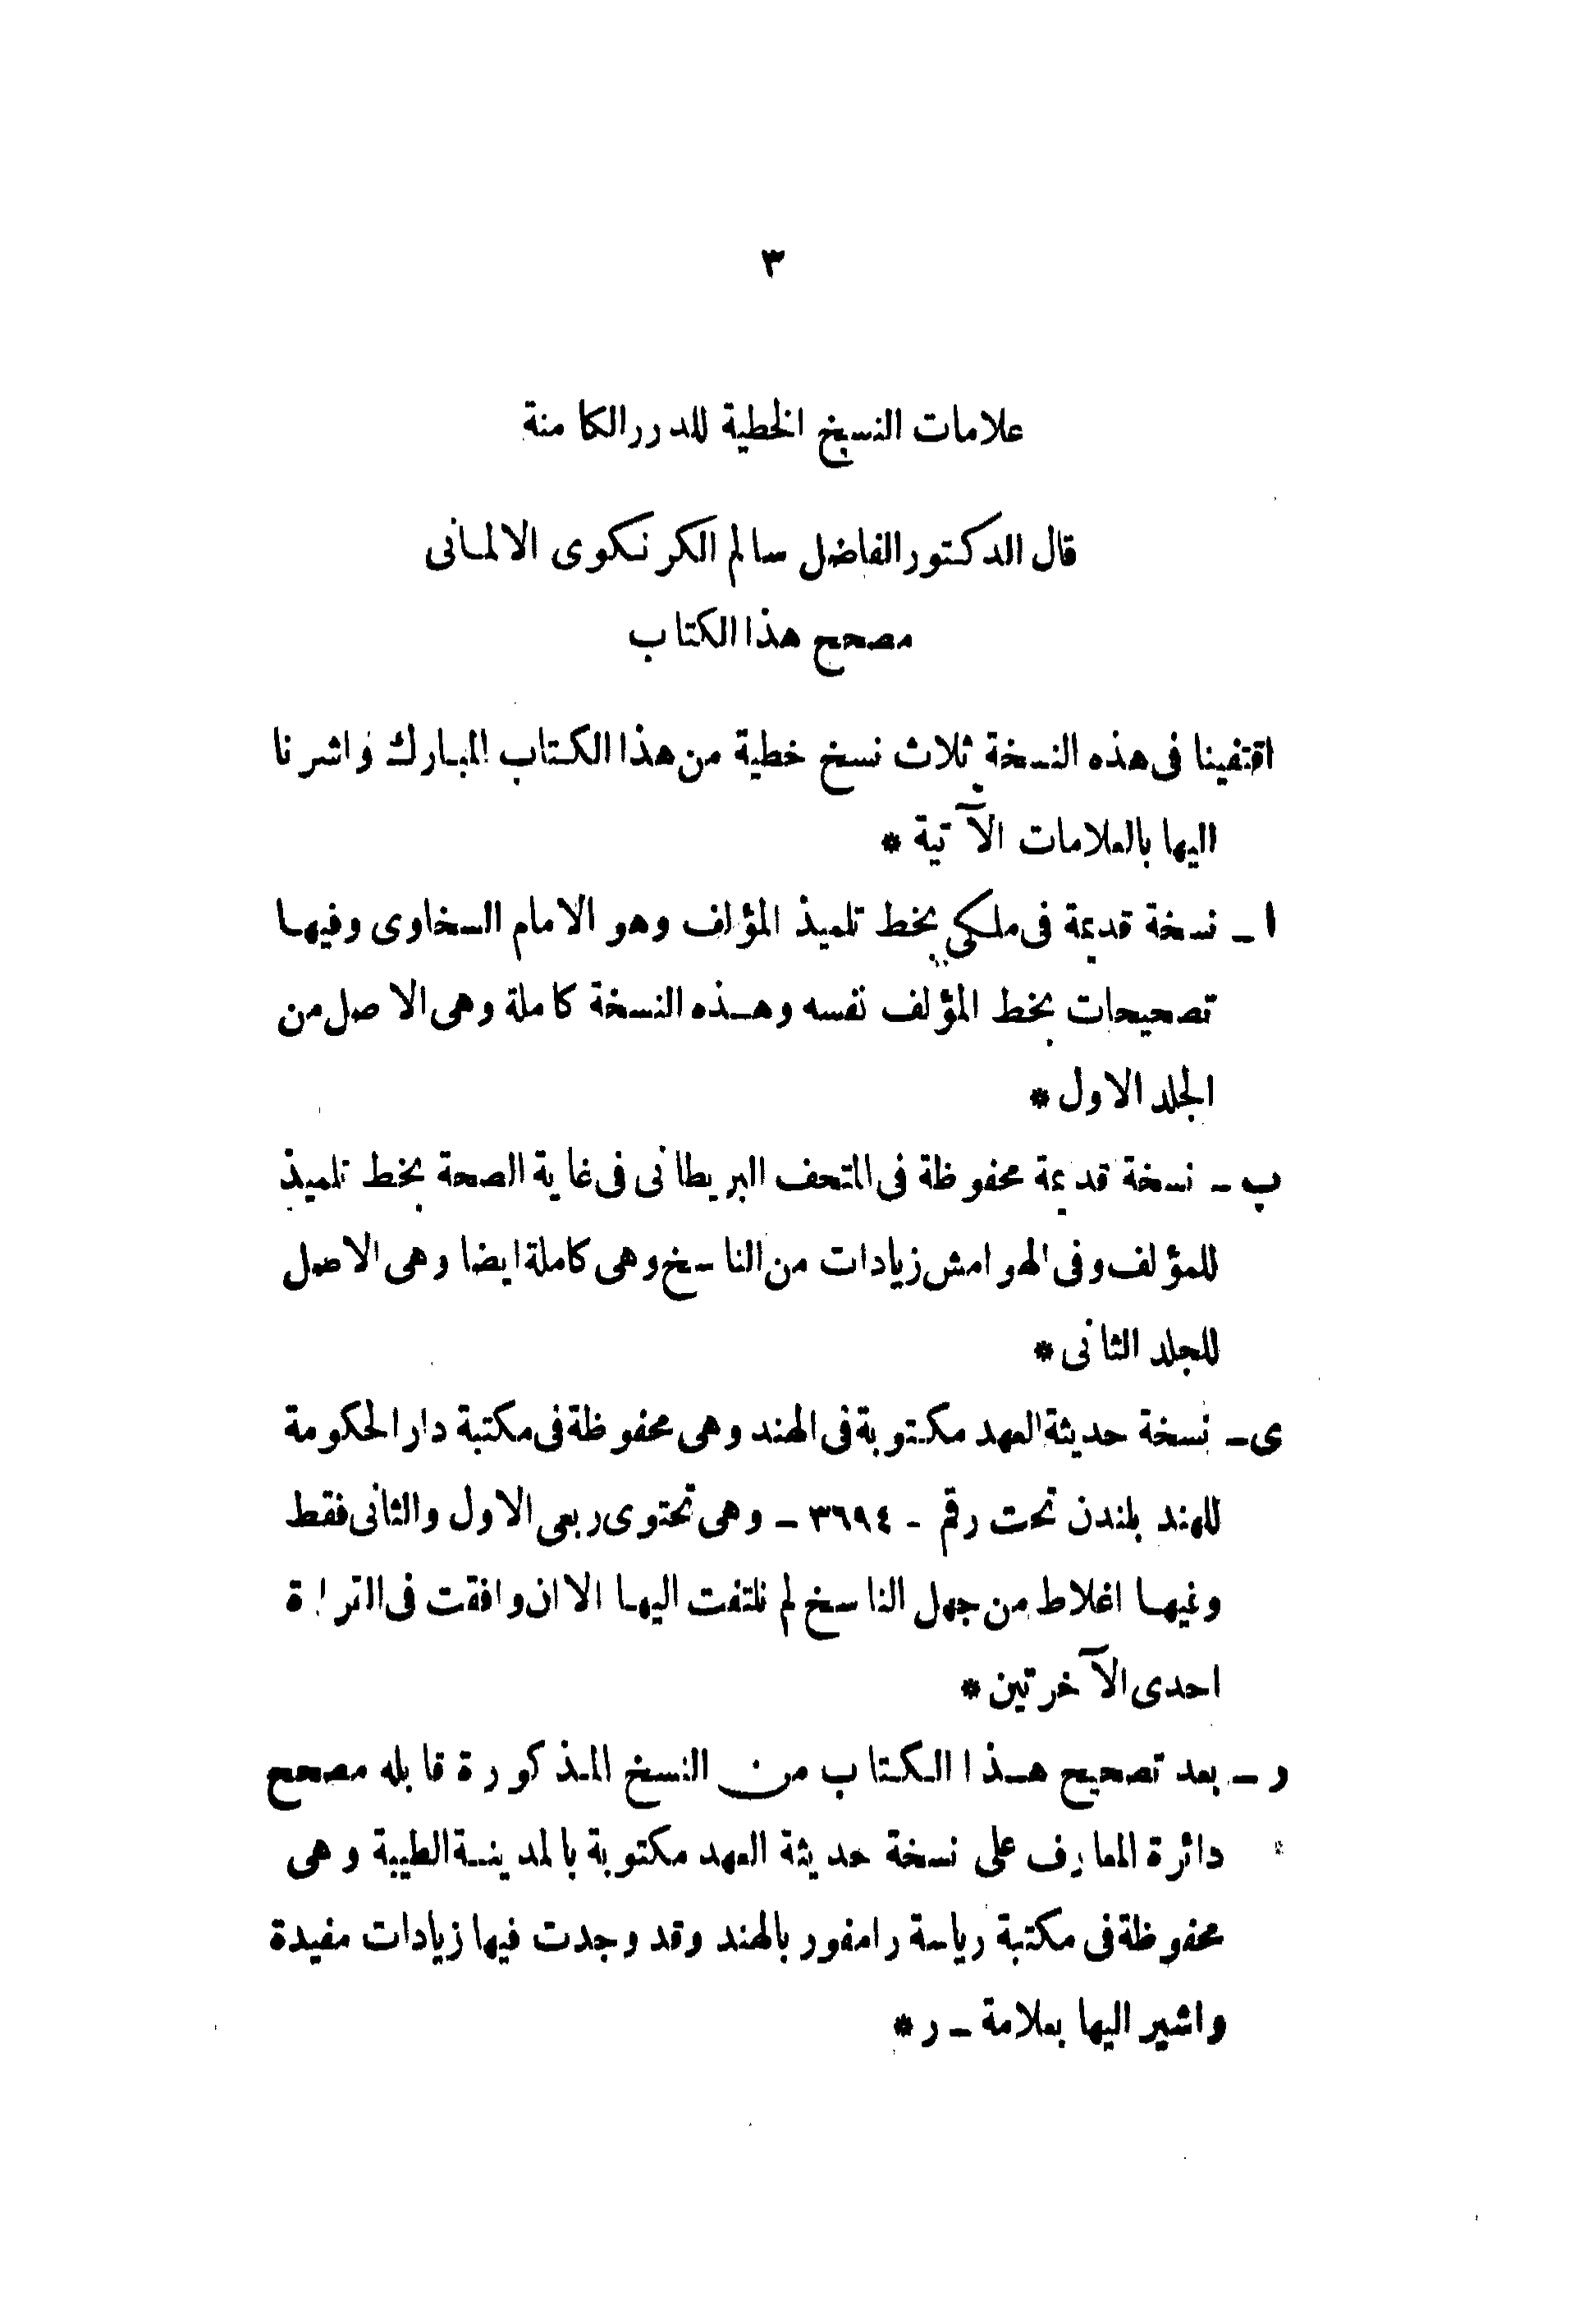 ٣
علامات النسخ الخطية للدرر الكامنة
قال الدكتور الفاضل سالم الكرنكوى الالمانى
مصحح هذا الكتاب
اقتفينا فى هذه النسخة ثلاث نسخ خطية من هذا الكتاب المبارك واشرنا
اليها بالعلامات الآتية *
ا ـ نسخة قديمة فى ملكى بخط تلميذ المؤلف وهو الامام السخاوى وفيها
تصحيحات بخط المؤلف نفسه وهذه النسخة كاملة وهى الاصل من
الجلد الاول *
ب ـ نسخة قديمة محفوظة فى المتحف البريطانى فى غاية الصحة بخط تلميذ
للمؤلف وفى الهوامش زيادات من الناسخ وهى كاملة ايضا وهى الاصل
للجلد الثانى *
ى ـ نسخة حديثة العهد مكتوبة فى الهند وهى محفوظة فى مكتبة دار الحكومة
للهند بلندن تحت رقم ـ ٣٦٩٤ ـ وهى تحتوى ربعى الاول والثانى فقط
وفيها اغلاط من جهل الناسخ لم نلتفت اليها الا ان وافقت فى القراءة
احدى الآخرتين *
ر ـ بعد تصحيح هذا الكتاب من النسخ المذكورة قابله مصحح
دائرة المعارف على نسخة حديثة العهد مكتوبة بالمدينة الطيبة وهى
محفوظة فى مكتبة رياسة رامفور بالهند وقد وجدت فيها زيادات مفيدة
واشير اليها بعلامة ـ ر *